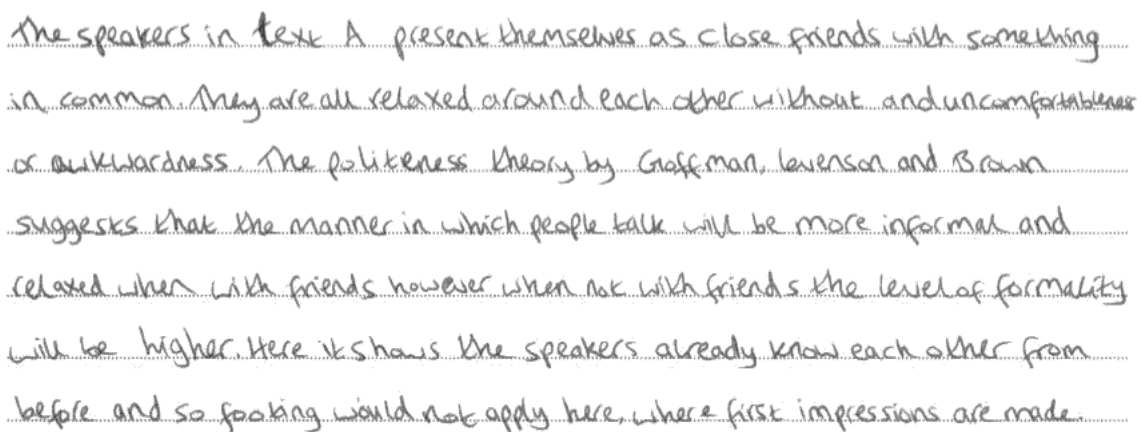 The speakers in text A present themselves as close friends with something
in common. They are all relaxed around each other without and uncomfortableness
or awkwardness. The politeness theory by Goffman, Levenson and Brown
suggests that the manner in which people talk will be more informal and
relaxed when with friends however when not with friends the level of formality
will be higher. Here it shows the speakers already know each other from
before and so footing would not apply here, where first impressions are made.